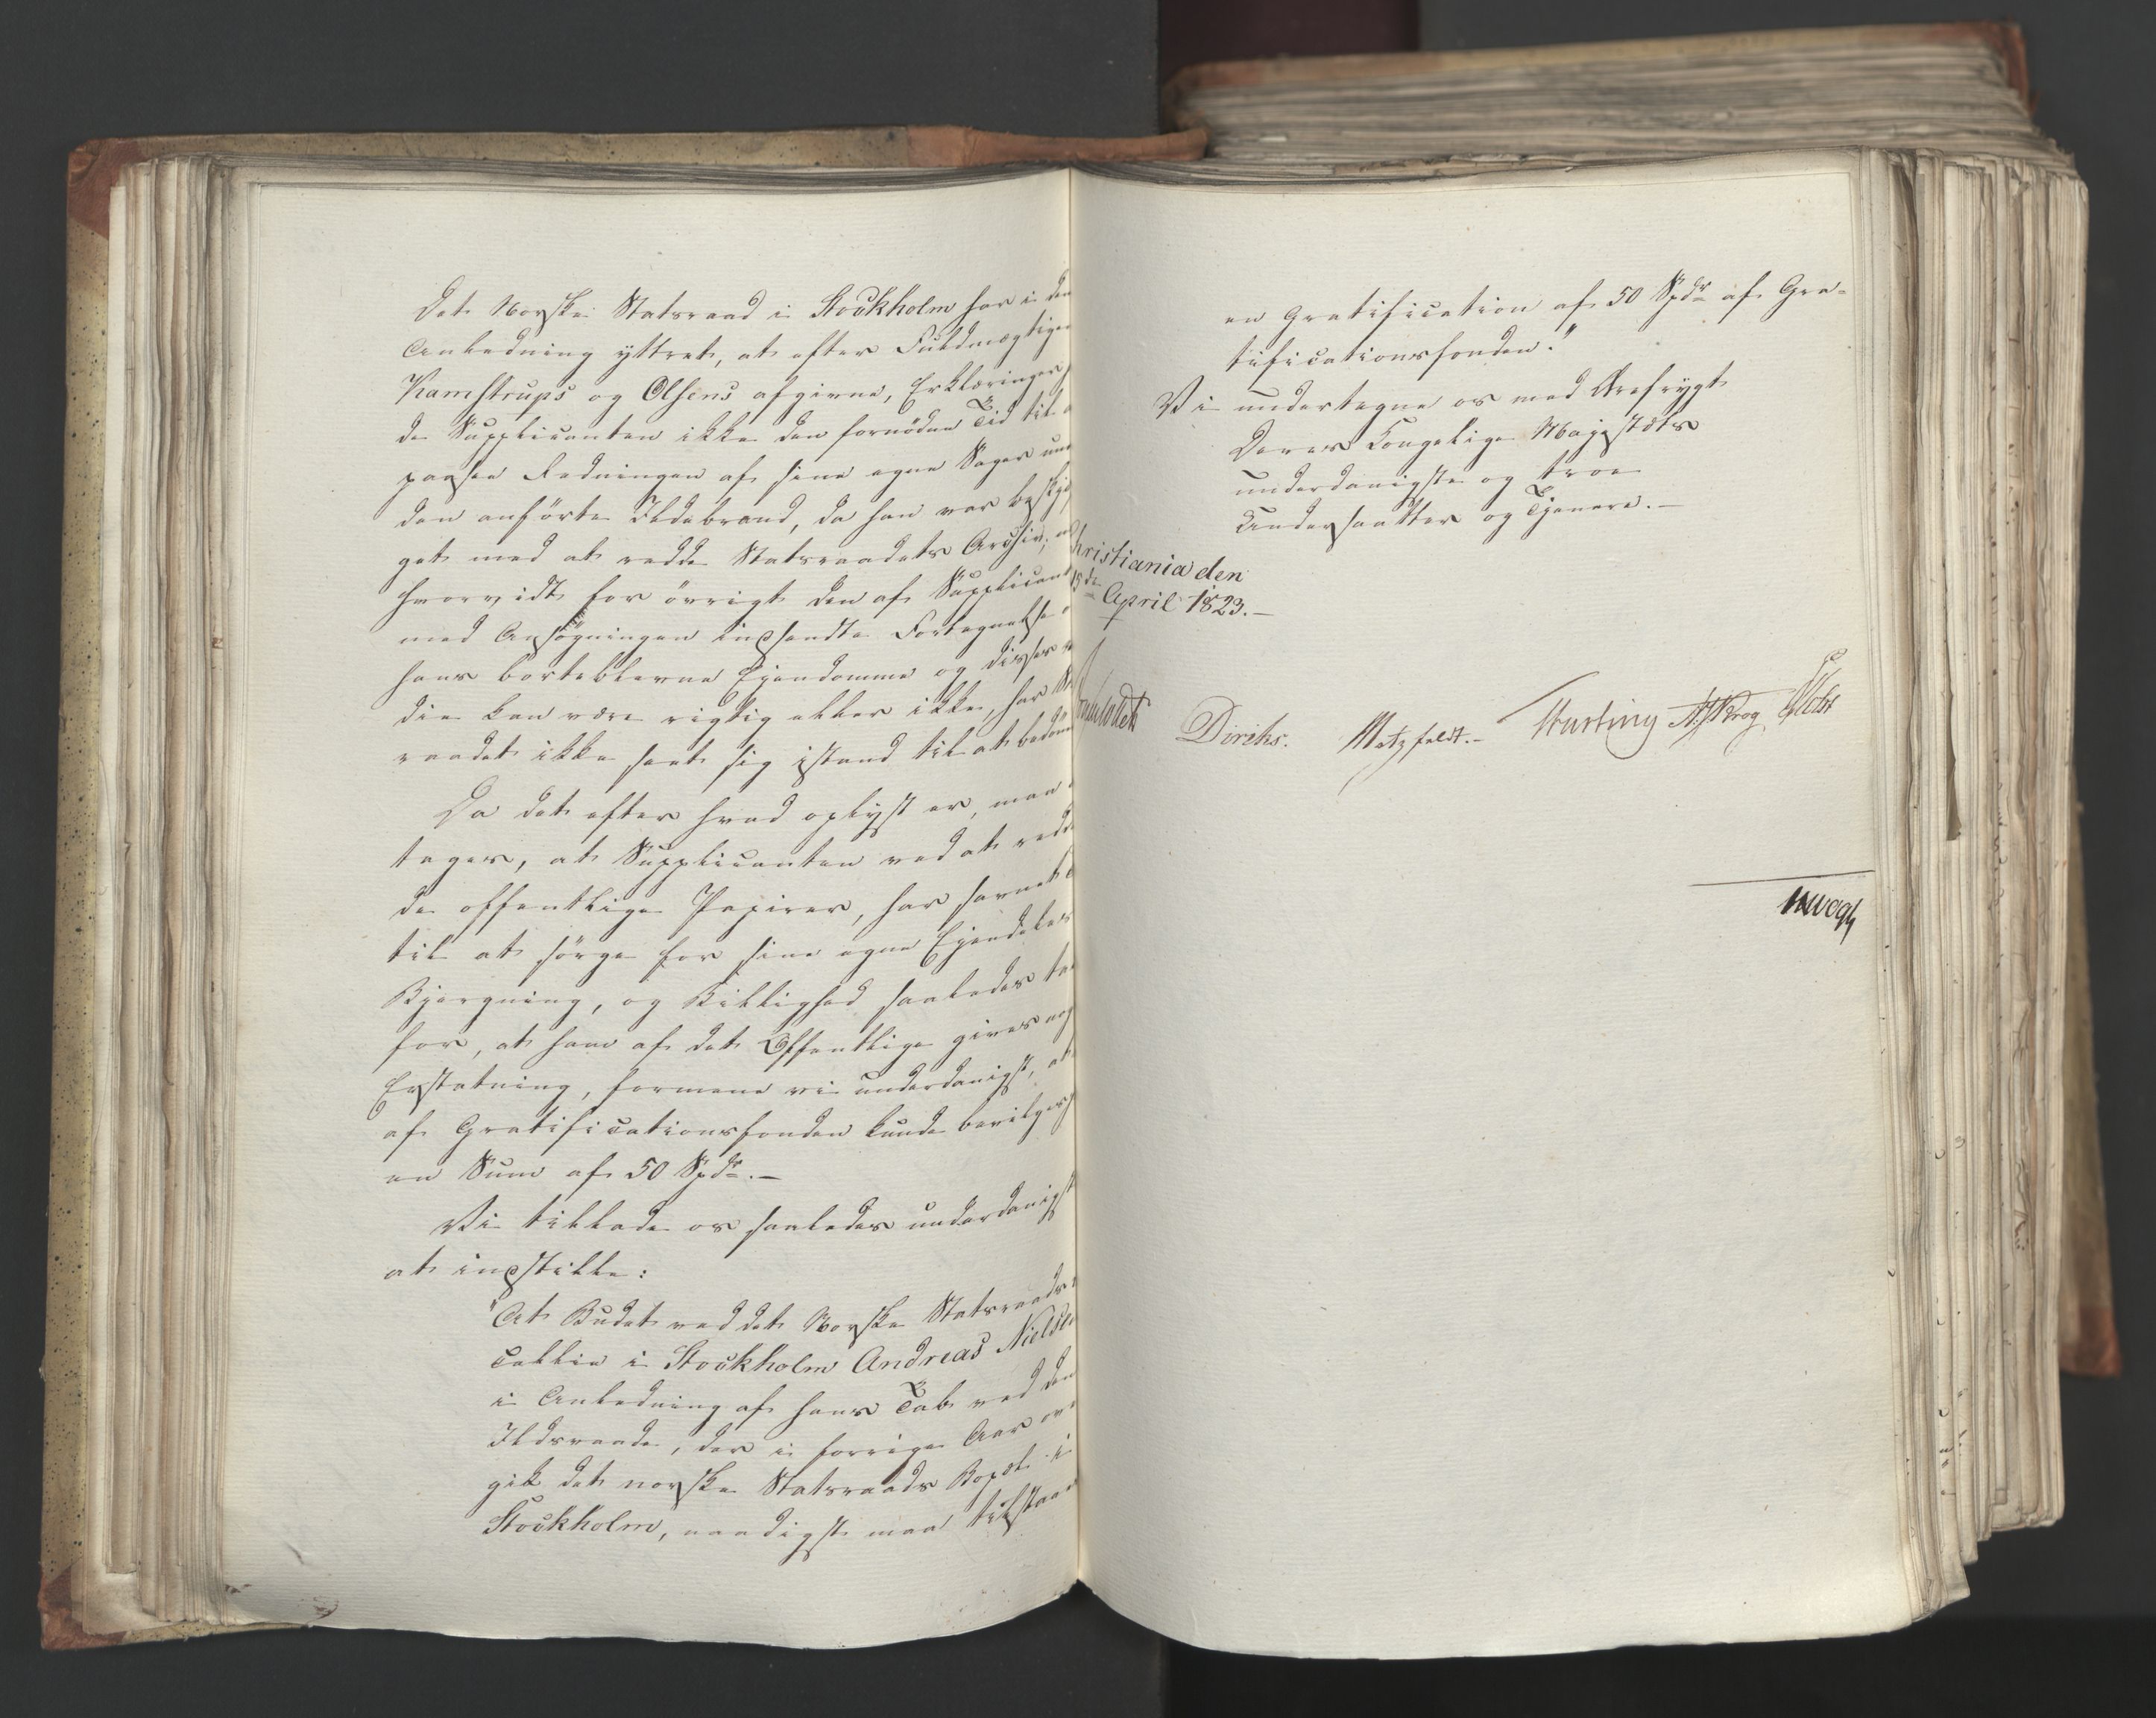 Det Norske Statsraad i Stockholm har i den
Anledning yttret, at efter Fuldmægtigen
Kamstrups og Olsens afgivne, Erklæringer
de Supplicanten ikke den fornødne Tid til
passe Redningen af sine egne Sager un
den anførte Ildebrand, da han var beskjæ
get med at redde Statsraadets Archiv;
hvorvidt for øvrigt den af Supplicant
med Ansøgningen indsendte Fortegnelse
hans bortblevne Ejendomme og disses
die kan være rigtig eller ikke, har St
raadet ikke seet sig istand til at bedøm
Da det efter hvad oplyst er, maa
tages, at Supplicanten ved at redd
de offentlige Papirer, har savnet
til at sørge for sine egne Ejendeles
Bjergning, og Billighed saaledes ta
for, at ham af det Offentlige gives nog
Erstatning, formene vi underdanigst, at
af Gratificationsfonden kunde bevilges
en Sum af 50 Spdr.-
Vi tillade os saaledes underdanigst
at indstille:
"At Budet ved det Norske Statsraads
cellie i Stockholm Andreas Nielsen
i Anledning af hans Tab ved den
Ildsvaade, der i forrige Aar ov
gik det norske Statsraads Bopæl i
Stockholm, naadigst maa tilstaae
en Gratification af 50 Spdr af Gra-
tificationsfonden."
Vi undertegne os med Ærefrygt
Deres Kongelige Majestæts
underdanigste og troe
Undersaatter og Tjenere.-
hristiania den
15de April 1823.-
Diriks. Motzfeldt.- Hesting Krog